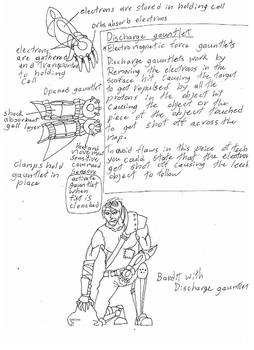 electrons are stored in holding cell
or to absorb electrons
electrons
are gathered
and transported
to holding
cell
Discharge gauntlet
• Electromagnetic force gauntlets
Discharge gauntlets work by
Removing the electrons in the
surface hit causing the target
to get repulsed by all the
protons in the object hit
Causing the object or the
piece of the object touched
to get shot off across the
map.
To avoid flaws in this peice of tech
you could state that the electrons
get shot off causing the
object to follow
Opened gauntlet
shock
absorbent
gell layer
Clamps hold
gauntlet in
place
Hand and
movement
sensitive
command
sensors
activate
gauntlet
when
fist is
clenched
Bandit with
Discharge gauntlet